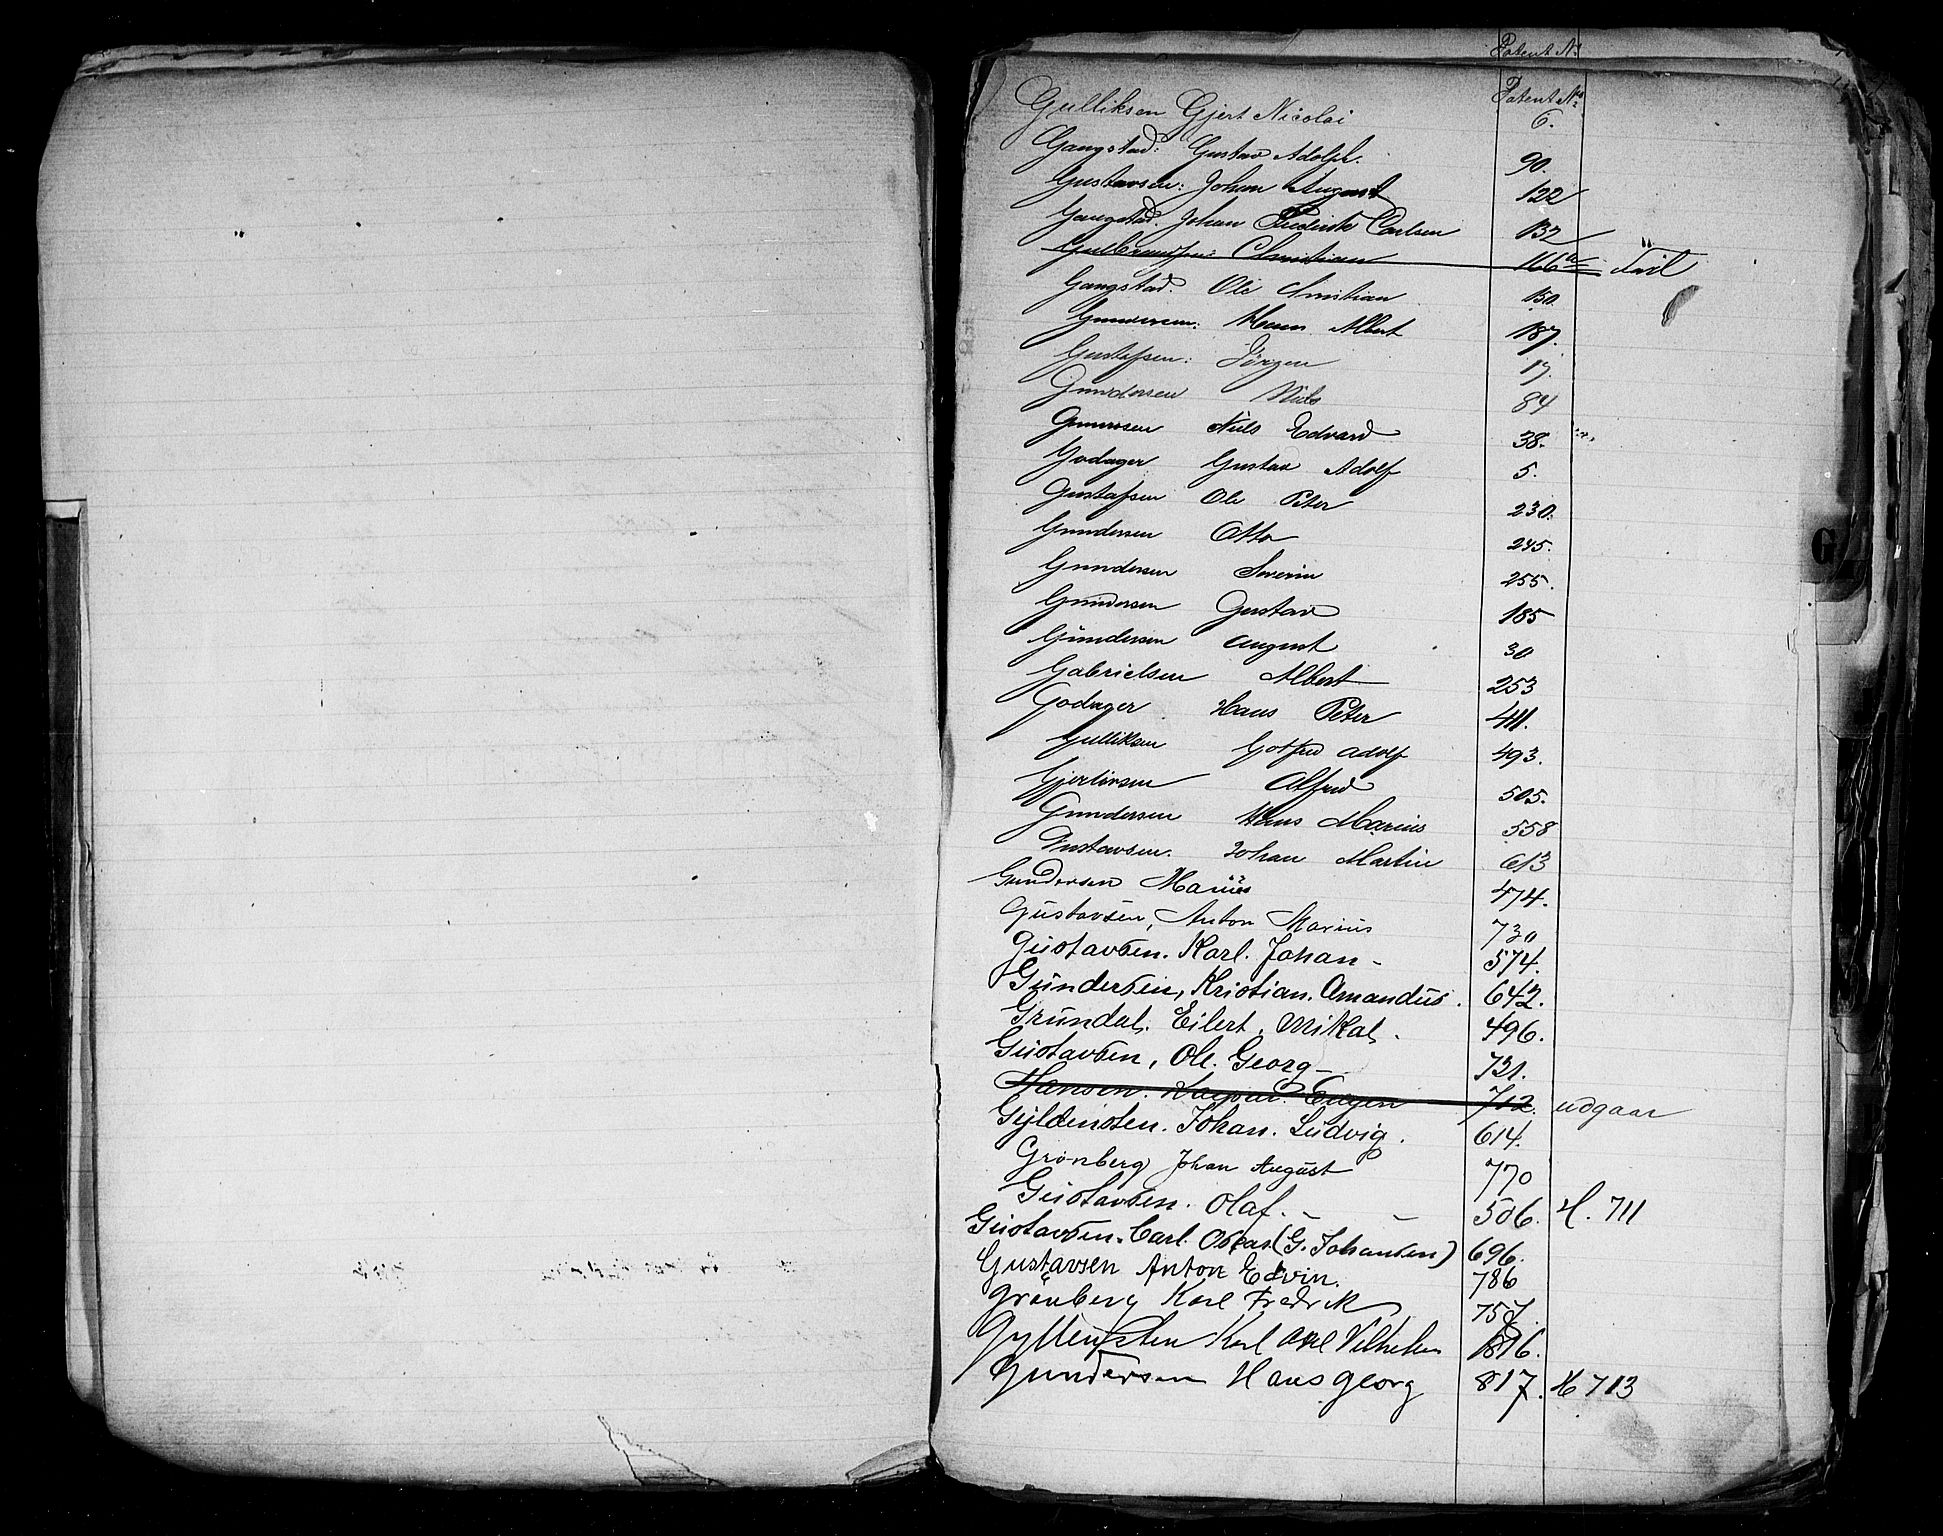 Patent No
Patent No
Gulliksen Gjert Nicolai 6.
Gangstad: Gustav Adolph. 90.
Gustavsen: Johan August 122
Gangstad. Johan Frederik Carlsen 132
Gulbrandsen: Christian 166
Gangstad. Ole Cristian 150.
Gundersen: Hans Albert 187.
Gustafsen: Jörgen 17.
Gundersen Niels 84
Gunersen Niels Edvard 38.
Godager Gustav Adolf 5.
Gustafsen Ole Peter 230.
Gundersen Otto 245.
Gundersen Severin 255.
Gundersen Gustav 185
Gundersen August 30
Gabrielsen Albert 253
Godager Hans Peter 411.
Gulliksen Gotfred Adolf 493.
Gjertinsen Alfred 505.
Gundersen Hans Marius 558
Gustavsen. Johan Martin 613
Gundersen Marius 474.
Gustavsen, Anton Marius 730
Gustavsen. Karl. Johan - 574.
Gundersen, Kristian. Amandus. 642.
Grundal. Eilert. Mikal. 496.
Gustavsen, Ole. Georg - 731.
Hansen. Kaspar. Eugen 712. udgaar
Gyldensten. Johan. Ludvig. 614.
Grönberg Johan August 770
Gustavsen. Olaf. - - 506. H. 711
Gustavsen. Carl. Oskar (G. Johansen) 696.
Gustavsen Anton Edvin. 786
Grönberg Karl Fredrik 757.
Gyllensten Karl Axel Vilhelm 816.
Gundersen Hans Georg 817. H 713
G